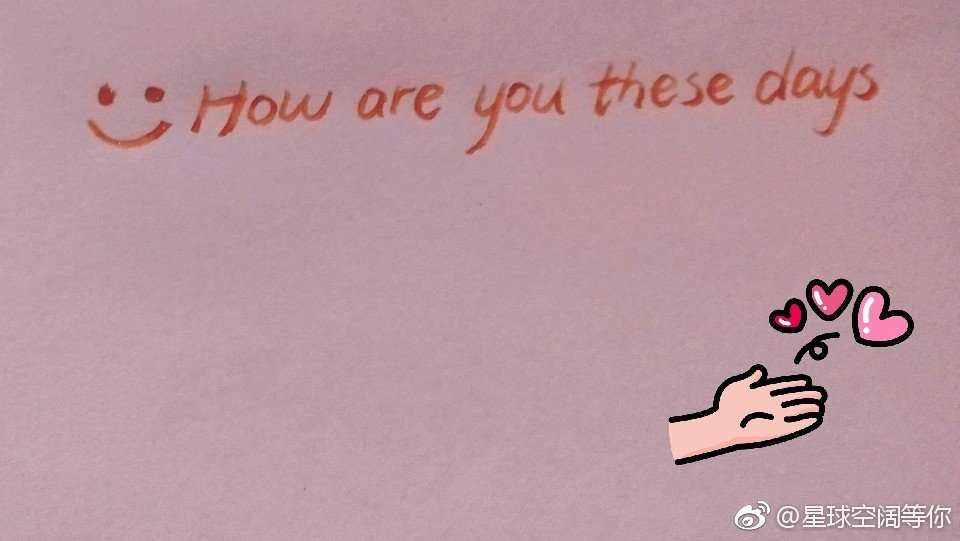 How are you these days
@星球空阔等你